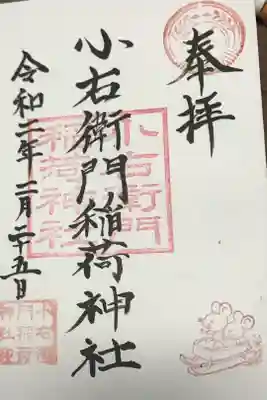 奉拝
小右衛門稲荷神社
令和二年二月二十五日
小右衛門
稲荷神社